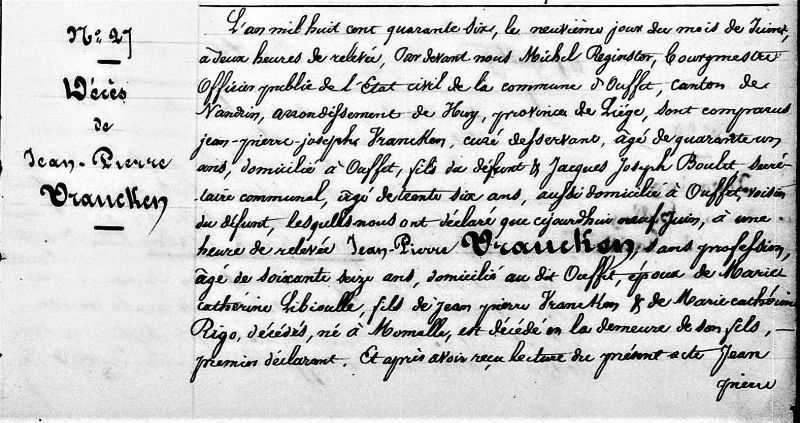 N.o 27
Décès
de
Jean-Pierre
Vrancken
L'an mil huit cent quarante six, le neuvième jour du mois de Juin,
à deux heures de relevée, Pardevant nous Michel Reginster, Bourgmestre
Officier public de l'Etat civil de la commune d'Ouffet, canton de
Nandrin, arrondissement de Huy, province de Liège, sont comparus
jean-pierre-joseph Vrancken, curé desservant, âgé de quarante un
ans, domicilié à Ouffet, fils du défunt & Jacques Joseph Boulet secré-
taire communal, âgé de trente six ans, aussi domicilié à Ouffet, voisin
du défunt, lesquels nous ont déclaré que cejourd'hui neuf Juin, à une
heure de relevée Jean-Pierre Vrancken, sans profession,
âgé de soixante seize ans, domicilié au dit Ouffet, époux de Marie
catherine Libioulle, fils de Jean pierre Vrancken & de Marie catherine
Rigo, décédés, né à Momalle, est décédé en la demeure de son fils,
premier déclarant. Et après avoir reçu lecture du présent acte Jean
pierre